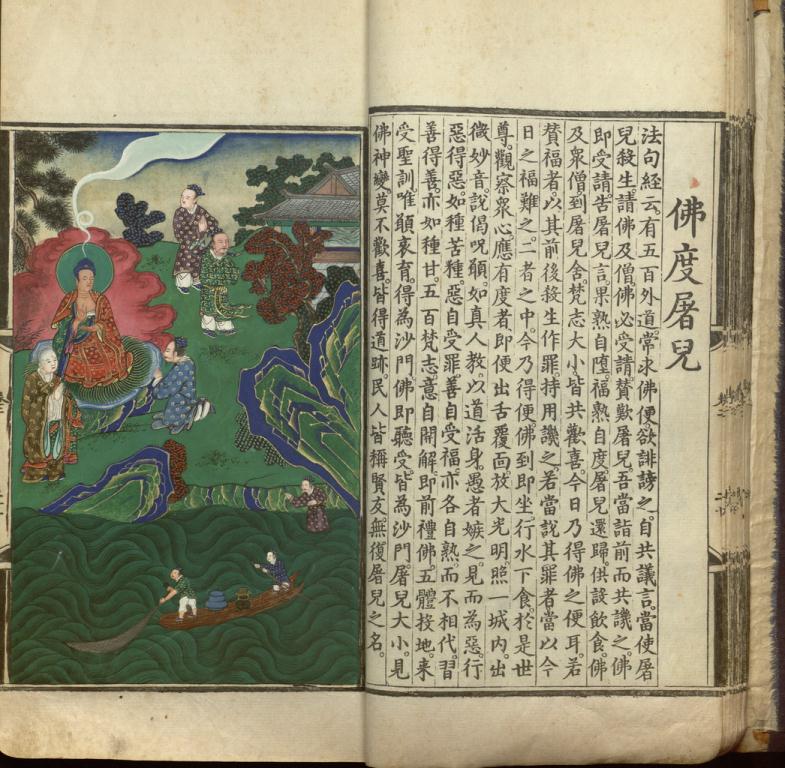 佛度屠兒
法句經云。有五百外道。常求佛便。欲誹謗之。自共議言。當使屠
兒殺生。請佛及僧。佛必受請。贊歎屠兒。吾當詣前而共譏之。佛
即受請。告屠兒言。果熟自墮。福熟自度。屠兒還歸。供設飲食。佛
及衆僧。到屠兒舍。梵志大小。皆共歡喜。今日乃得佛之便耳。若
贊福者。以其前後殺生作罪。持用譏之。若當說其罪者。當以今
日之福難之。二者之中。今乃得便。佛到即坐。行水下食。於是世
尊。觀察衆心。應有度者。即便出舌覆面。放大光明。照一城內。出
微妙音。說偈呪願。如真人教。以道活身。愚者嫉之。見而為惡。行
惡得惡。如種苦種。惡自受罪。善自受福。亦各自熟。而不相代。習
善得善。亦如種甘。五百梵志。意自開解。即前禮佛。五體投地。来
受聖訓。唯願哀育。得為沙門。佛即聽受。皆為沙門。屠兒大小。見
佛神變。莫不歡喜。皆得道跡。民人皆稱賢友。無復屠兒之名。